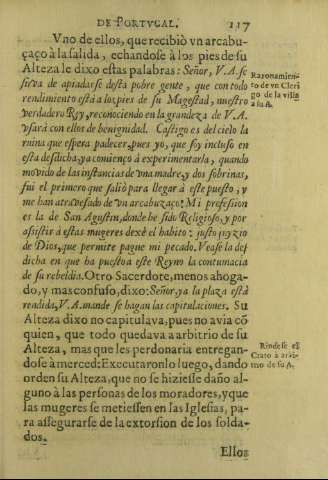 DE PORTVGAL. 117
Vno de ellos, que recibiò vn arcabu-
çaço à la salida, echandose à los pies de su
Alteza le dixo estas palabras: Señor, V.A. se
sirva de apiadarse desta pobre gente, que con todo
rendimiento està a los pies de su Magestad, nuestro
verdadero Rey, reconociendo en la grandeza de V.A.
vsarà con ellos de benignidad. Castigo es del cielo la
ruina que espera padecer, pues yo, que soy incluso en
esta desdicha, ya comienço à experimentarla, quando
movido de las instancias de vna madre, y dos sobrinas,
fui el primero que saliò para llegar à este puesto, y
me han atravesado de vn arcabuzaço: Mi profession
es la de San Agustin, donde he sido Religioso, y por
assistir à estas mugeres dexè el habito: justo juyzio
de Dios, que permite pague mi pecado. Vease la des
dicha en que ha puesto a este Reyno la contumacia
de su rebeldia. Otro Sacerdote, menos ahoga-
do, y mas confuso, dixo: Señor, ya la plaza està
rendida, V.A. mande se hagan las capitulaciones. Su
Alteza dixo no capitulava, pues no avia cõ
quien, que todo quedava a arbitrio de su
Alteza, mas que les perdonaria entregan-
dose à merced; Executaronlo luego, dando
orden su Alteza, que no se hiziesse daño al-
guno à las personas de los moradores, y que
las mugeres se metiessen en las Iglesias, pa-
ra assegurarse de la extorsion de los solda-
dos.
Ellos
Razonamien-
to de vn Cleri
go de la villa
à su A.
Rindese el
Crato à arbi-
trio de su A.